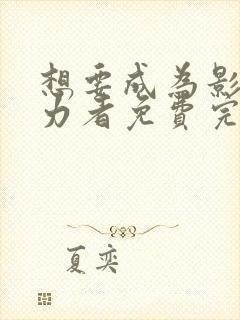 想要成为影
力者免費完
夏奕